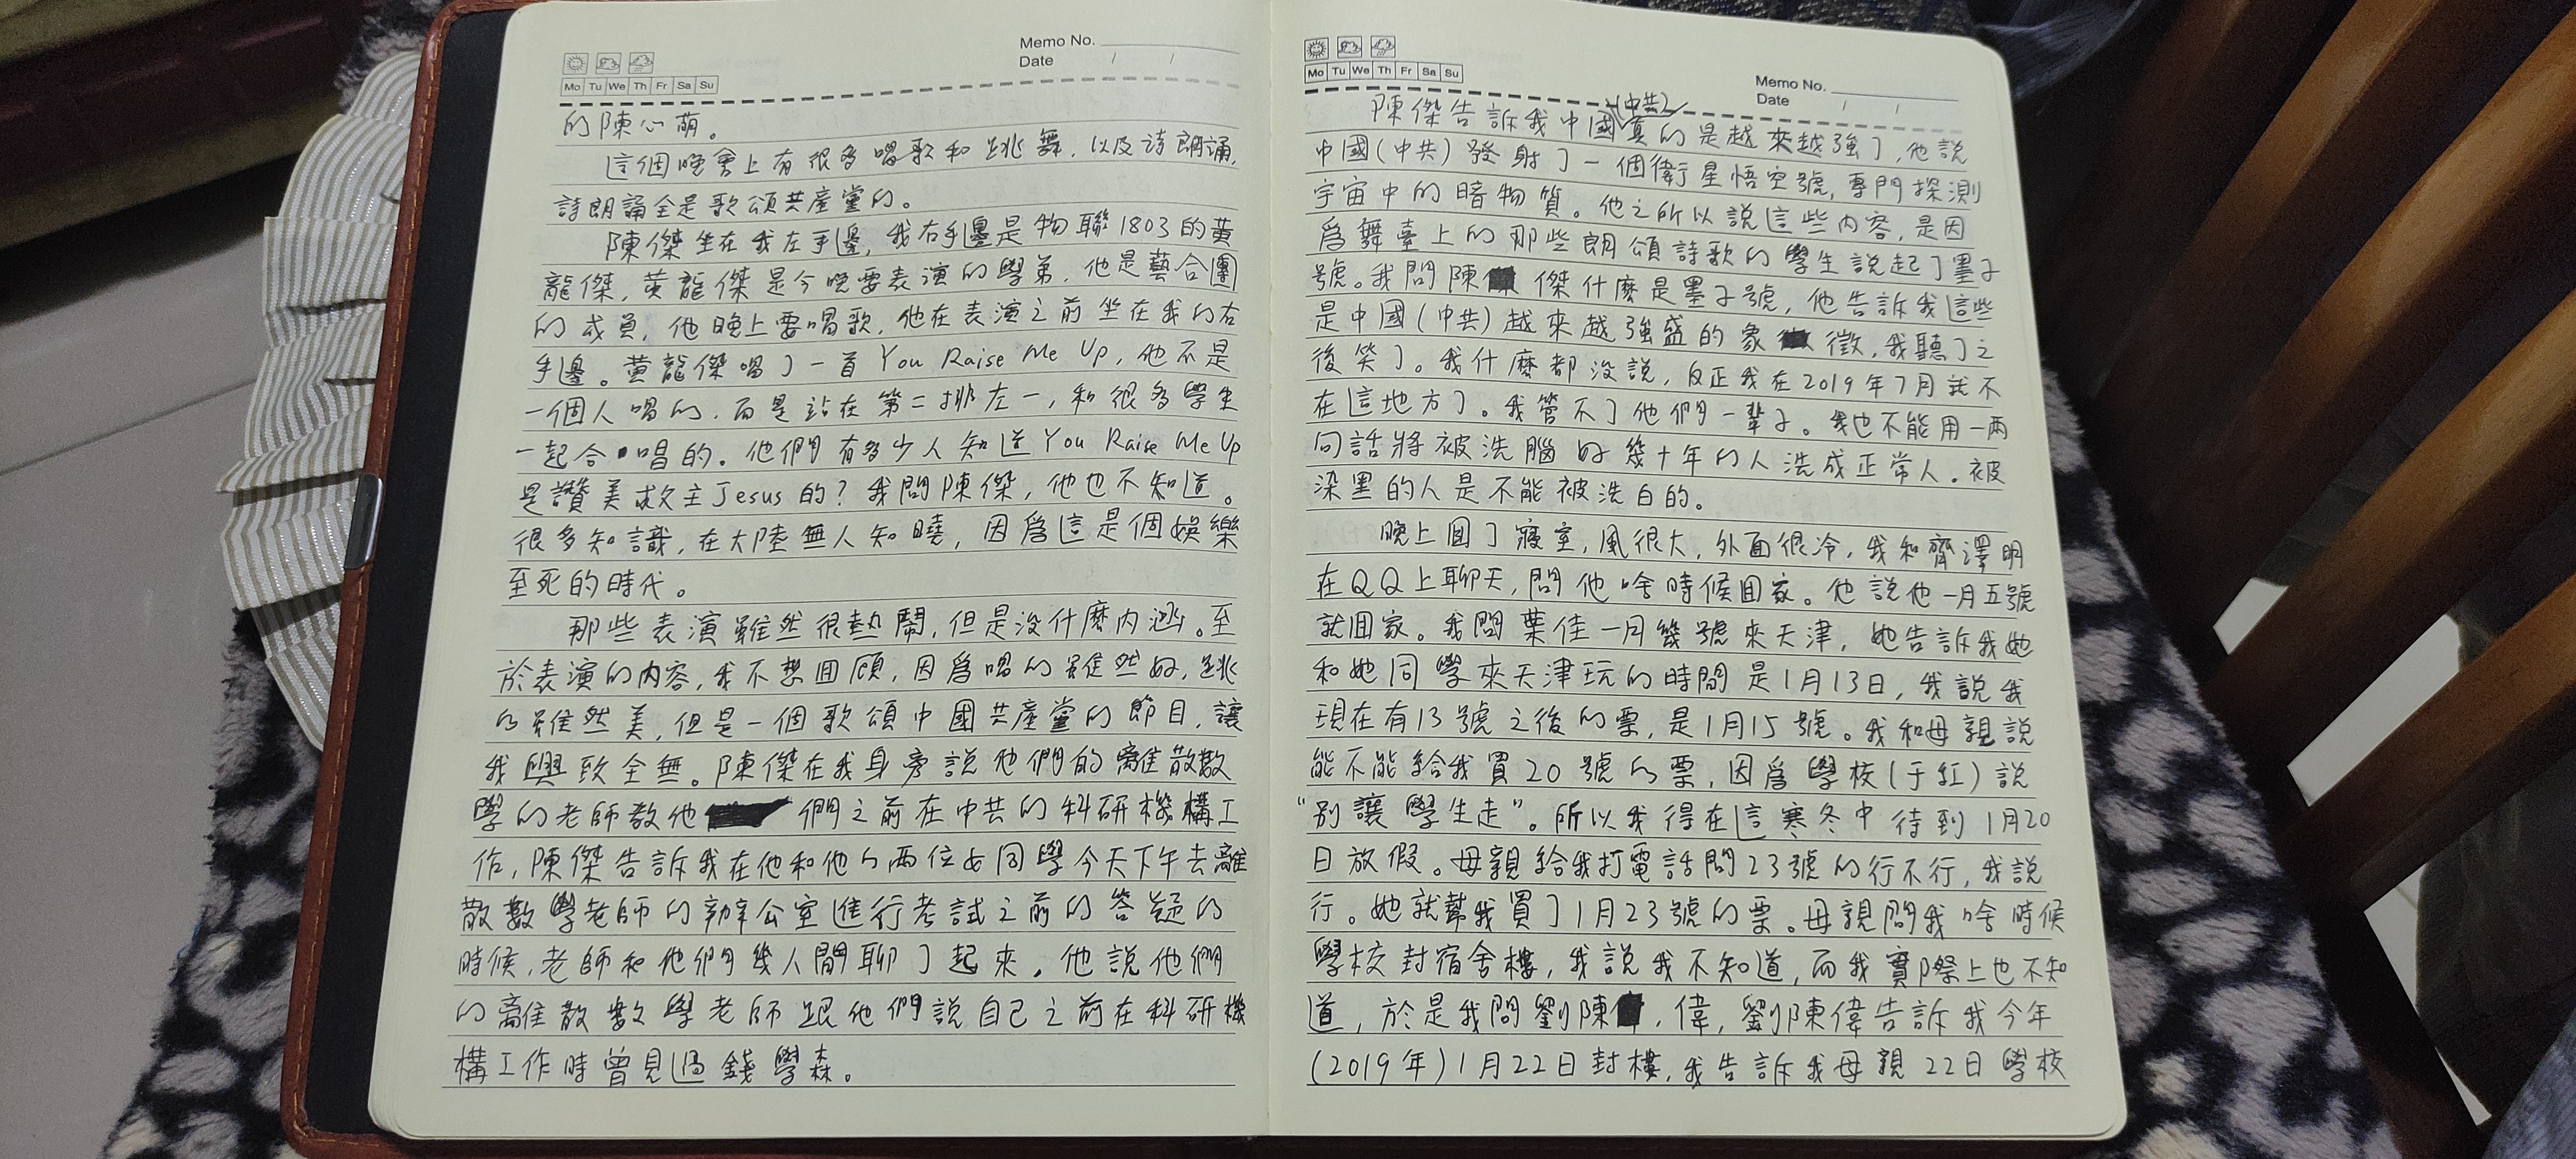 Memo No.
Date / /
Mo Tu We Th Fr Sa Su
的陳心萌。
這個晚會上有很多唱歌和跳舞,以及詩朗誦,
詩朗誦全是歌頌共產黨的。
陳傑坐在我左手邊,我右手邊是物聯1803的黃
龍傑,黃龍傑是今晚要表演的學弟,他是藝合團
的成員,他晚上要唱歌,他在表演之前坐在我的右
手邊。黃龍傑唱了一首You Raise Me Up,他不是
一個人唱的,而是站在第二排左一,和很多學生
一起合唱的。他們有多少人知道You Raise Me Up
是讚美救主Jesus的?我問陳傑,他也不知道。
很多知識,在大陸無人知曉,因爲這是個娛樂
至死的時代。
那些表演雖然很熱鬧,但是沒什麼内涵。至
於表演的内容,我不想回顧,因爲唱的雖然好,跳
的雖然美,但是一個歌頌中國共產黨的節目,讓
我興致全無。陳傑在我身旁說他們的離散數
學的老師教他們之前在中共的科研機構工
作,陳傑告訴我在他和他的兩位女同學今天下午去離
散數學老師的辦公室進行考試之前的答疑的
時候,老師和他們幾人閒聊了起來。他說他們
的離散數學老師跟他們說自己之前在科研機
構工作時曾見過錢學森。
Mo Tu We Th Fr Sa Su
Memo No.
Date / /
陳傑告訴我中國(中共)真的是越來越強了,他說
中國(中共)發射了一個衛星悟空號,專門探測
宇宙中的暗物質。他之所以說這些内容,是因
爲舞臺上的那些朗頌詩歌的學生說起了墨子
號。我問陳傑什麼是墨子號,他告訴我這些
是中國(中共)越來越強盛的象徵,我聽了之
後笑了。我什麼都沒說,反正我在2019年7月就不
在這地方了。我管不了他們一輩子。我也不能用一兩
句話將被洗腦好幾十年的人洗成正常人。被
染黑的人是不能被洗白的。
晚上回了寢室,風很大,外面很冷,我和齊澤明
在QQ上聊天,問他啥時候回家。他說他一月五號
就回家。我問葉佳一月幾號來天津,她告訴我她
和她同學來天津玩的時間是1月13日,我說我
現在有13號之後的票,是1月15號。我和母親說
能不能給我買20號的票,因爲學校(于紅)說
“別讓學生走”。所以我得在這寒冬中待到1月20
日放假。母親給我打電話問23號的行不行,我說
行。她就幫我買了1月23號的票。母親問我啥時候
學校封宿舍樓,我說我不知道,而我實際上也不知
道,於是我問劉陳偉,劉陳偉告訴我今年
(2019年)1月22日封樓,我告訴我母親22日學校